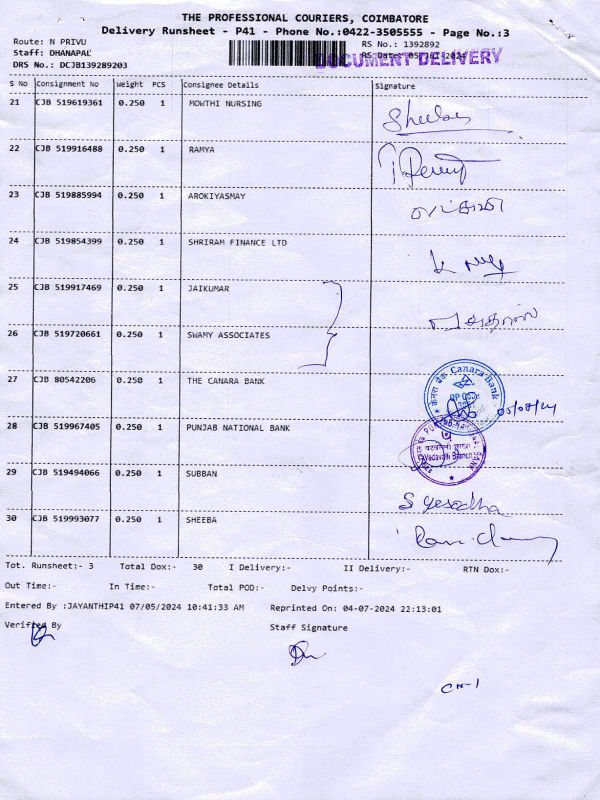 THE PROFESSIONAL COURIERS, COIMBATORE
Delivery Runsheet - P41 - Phone No.:0422-3505555 - Page No.:3
Route: N PRIVU RS No.: 1392892
Staff: DHANAPAL RS Date: 05-Jul-2024
DOCUMENT DELIVERY
DRS No.: DCJB139289203
S No Consignment No Weight PCS Consignee Details Signature
21 CJB 519619361 0.250 1 MOWTHI NURSING
22 CJB 519916488 0.250 1 RAMYA
23 CJB 519885994 0.250 1 AROKIYASMAY
24 CJB 519854399 0.250 1 SHRIRAM FINANCE LTD
25 CJB 519917469 0.250 1 JAIKUMAR
26 CJB 519720661 0.250 1 SWAMY ASSOCIATES
27 CJB 80542206 0.250 1 THE CANARA BANK
केनरा बैंक Canara Bank
05/07/24
28 CJB 519967405 0.250 1 PUNJAB NATIONAL BANK
Vadavalli Branch
29 CJB 519494066 0.250 1 SUBBAN
S Yesodha
30 CJB 519993077 0.250 1 SHEEBA
Tot. Runsheet:- 3 Total Dox:- 30 I Delivery:- II Delivery:- RTN Dox:-
Out Time:- In Time:- Total POD:- Delvy Points:-
Entered By :JAYANTHIP41 07/05/2024 10:41:33 AM Reprinted On: 04-07-2024 22:13:01
Verified By Staff Signature
CN-1